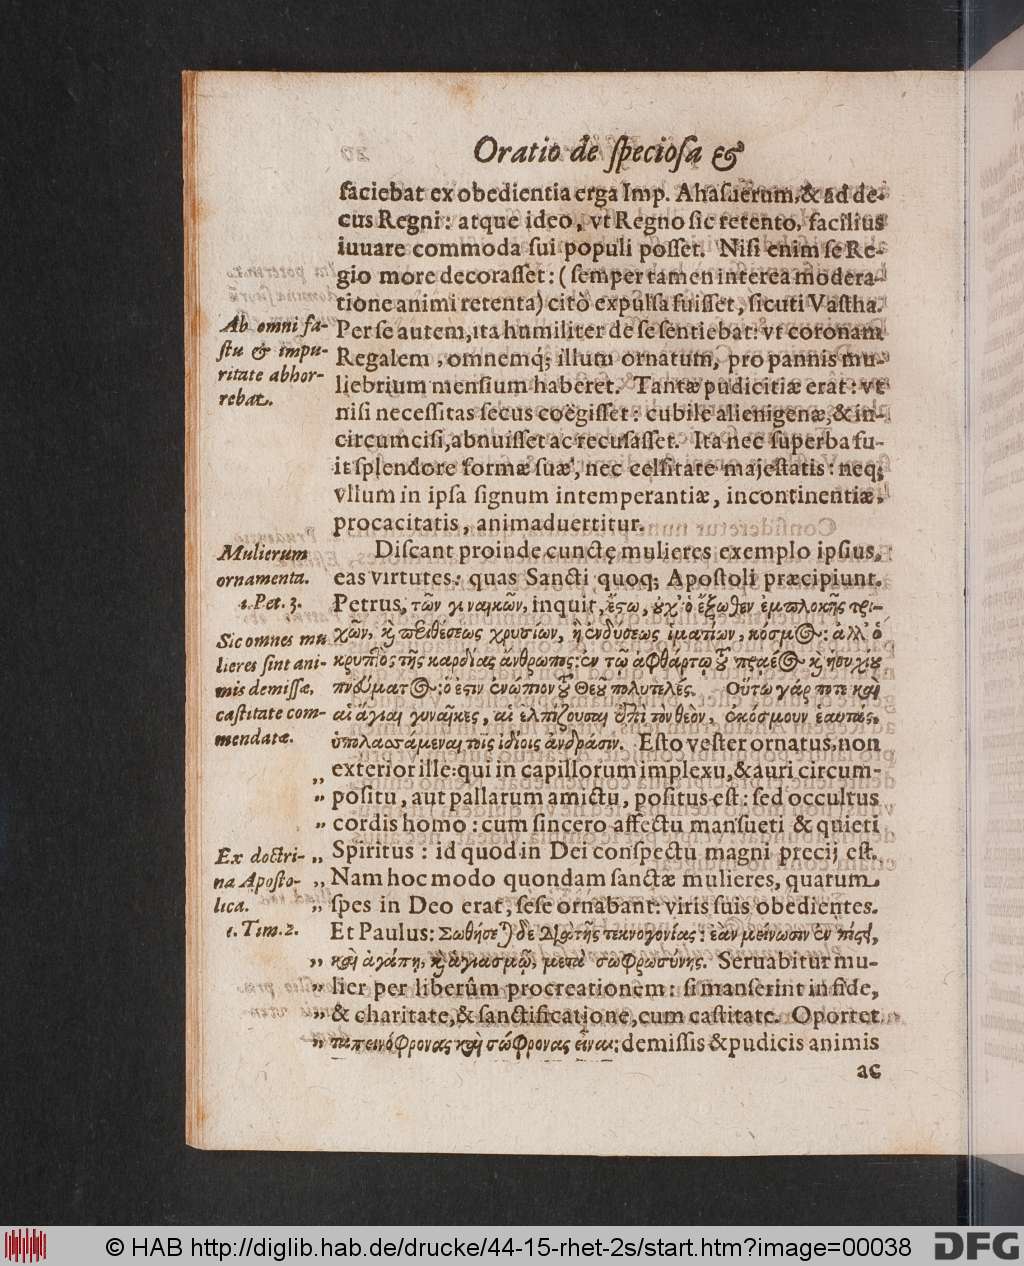 Oratio de speciosa &
faciebat ex obedientia erga Imp. Ahasuerum, & ad de-
cus Regni: atque ideo, vt Regno sic retento, facilius
iuuare commoda sui populi posset. Nisi enim se Re-
gio more decorasset: (semper tamen interea modera-
tione animi retenta) citò expulsa fuisset, sicuti Vastha.
Ab omni fa-
stu & impu-
ritate abhor-
rebat.
Per se autem, ita humiliter de se sentiebat: vt coronam
Regalem, omnemq́; illum ornatum, pro pannis mu-
liebrium mensium haberet. Tantæ pudicitiæ erat: vt
nisi necessitas secus coëgisset: cubile alienigenæ, & in-
circumcisi, abnuisset ac recusasset. Ita nec superba fu-
it splendore formæ suæ, nec celsitate majestatis: neq;
vllum in ipsa signum intemperantiæ, incontinentiæ,
procacitatis, animaduertitur.
Mulierum
ornamenta.
1. Pet. 3.
Sic omnes mu
lieres sint ani-
mis demissæ,
castitate com-
mendatæ.
Discant proinde cunctę mulieres exemplo ipsius,
eas virtutes: quas Sancti quoq; Apostoli præcipiunt.
Petrus, τῶν γυναικῶν, inquit, ἔστω, οὐχ' ὁ ἔξωθεν ἐμπλοκῆς τρι-
χῶν, καὶ περιθέσεως χρυσίων, ἢ ἐνδύσεως ἱματίων, κόσμος: ἀλλ' ὁ
κρυπτὸς τῆς καρδίας ἄνθρωπος: ἐν τῷ ἀφθάρτῳ τοῦ πραέος καὶ ἡσυχίου
πνεύματος: ὅ ἐστιν ἐνώπιον τοῦ Θεοῦ πολυτελές. Οὕτω γάρ ποτε καὶ
αἱ ἅγιαι γυναῖκες, αἱ ἐλπίζουσαι ἐπὶ τὸν θεὸν, ἐκόσμουν ἑαυτάς,
ὑποτασσόμεναι τοῖς ἰδίοις ἀνδράσιν. Esto vester ornatus, non
„ exterior ille: qui in capillorum implexu, & auri circum-
„ positu, aut pallarum amictu, positus est: sed occultus
„ cordis homo: cum sincero affectu mansueti & quieti
Ex doctri-
na Aposto-
lica.
1. Tim. 2.
„ Spiritus: id quod in Dei conspectu magni precij est.
„ Nam hoc modo quondam sanctæ mulieres, quarum
„ spes in Deo erat, sese ornabant: viris suis obedientes.
Et Paulus: Σωθήσεται δὲ διὰ τῆς τεκνογονίας: ἐὰν μείνωσιν ἐν πίστει,
„ καὶ ἀγάπῃ, καὶ ἁγιασμῷ, μετὰ σωφρωσύνης. Seruabitur mu-
„ lier per liberûm procreationem: si manserint in fide,
„ & charitate, & sanctificatione, cum castitate. Oportet
„ ταπεινόφρονας καὶ σώφρονας εἶναι: demissis & pudicis animis
ac
© HAB http://diglib.hab.de/drucke/44-15-rhet-2s/start.htm?image=00038
DFG